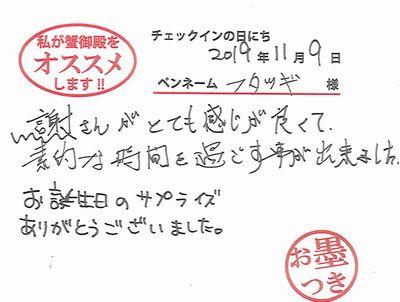 私が蟹御殿を
オススメ
します!!
チェックインの日にち
2019年11月9日
ペンネーム フタツギ 様
謝さんがとても感じが良くて、
素的な時間を過ごす事が出来ました。
お誕生日のサプライズ
ありがとうございました。
お墨
つき